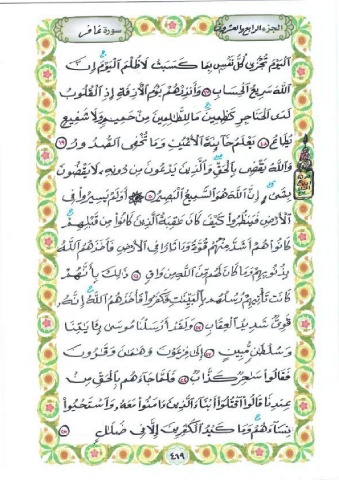 الجزء الرابع والعشرون
سورة غافر
اليوم تجزى كل نفس بما كسبت لا ظلم اليوم إن
الله سريع الحساب ١٧ وأنذرهم يوم الآزفة إذ القلوب
لدى الحناجر كاظمين ما للظالمين من حميم ولا شفيع
يطاع ١٨ يعلم خائنة الأعين وما تخفي الصدور ١٩
والله يقضي بالحق والذين يدعون من دونه لا يقضون
بشيء إن الله هو السميع البصير ٢٠ أولم يسيروا في
الأرض فينظروا كيف كان عاقبة الذين كانوا من قبلهم
كانوا هم أشد منهم قوة وءاثارا في الأرض فأخذهم الله
بذنوبهم وما كان لهم من الله من واق ٢١ ذلك بأنهم
كانت تأتيهم رسلهم بالبينات فكفروا فأخذهم الله إنه
قوي شديد العقاب ٢٢ ولقد أرسلنا موسى بآياتنا
وسلطان مبين ٢٣ إلى فرعون وهامان وقارون
فقالوا ساحر كذاب ٢٤ فلما جاءهم بالحق من
عندنا قالوا اقتلوا أبناء الذين ءامنوا معه واستحيوا
نساءهم وما كيد الكافرين إلا في ضلال ٢٥
٤٦٩